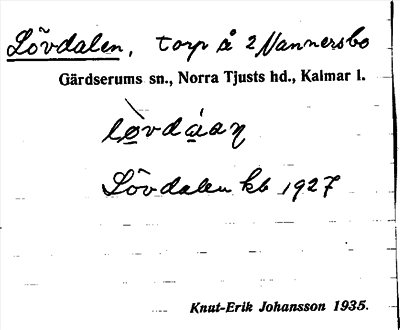 Lövdalen, torp å 2 Nannersbo
Gärdserums sn., Norra Tjusts hd., Kalmar l.
Lövdalen kb 1927
Knut-Erik Johansson 1935.